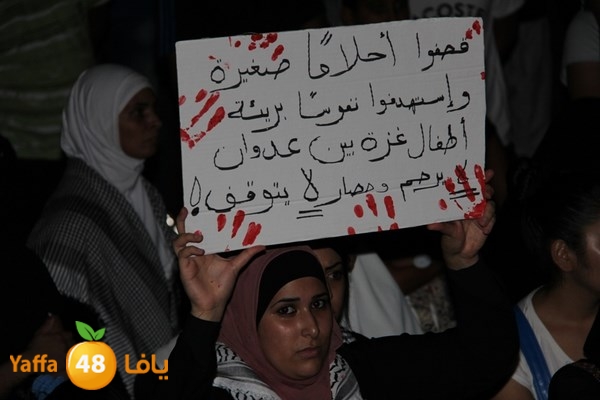 LACOSTE
قصفوا أحلامًا صغيرة
وإستهدفوا نفوسًا بريئة
أطفال غزة بين عدوان
لا يرحم وحصار لا يتوقف!!
Yaffa 48 يافا